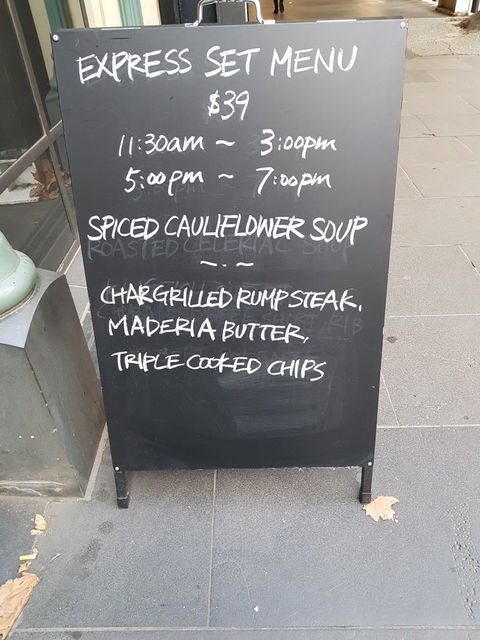 EXPRESS SET MENU
$39
11:30am ~ 3:00pm
5:00pm ~ 7:00pm
SPICED CAULIFLOWER SOUP
ROASTED CELERIAC SOUP
~ . ~
CHARGRILLED RUMP STEAK,
MADERIA BUTTER,
TRIPLE COOKED CHIPS